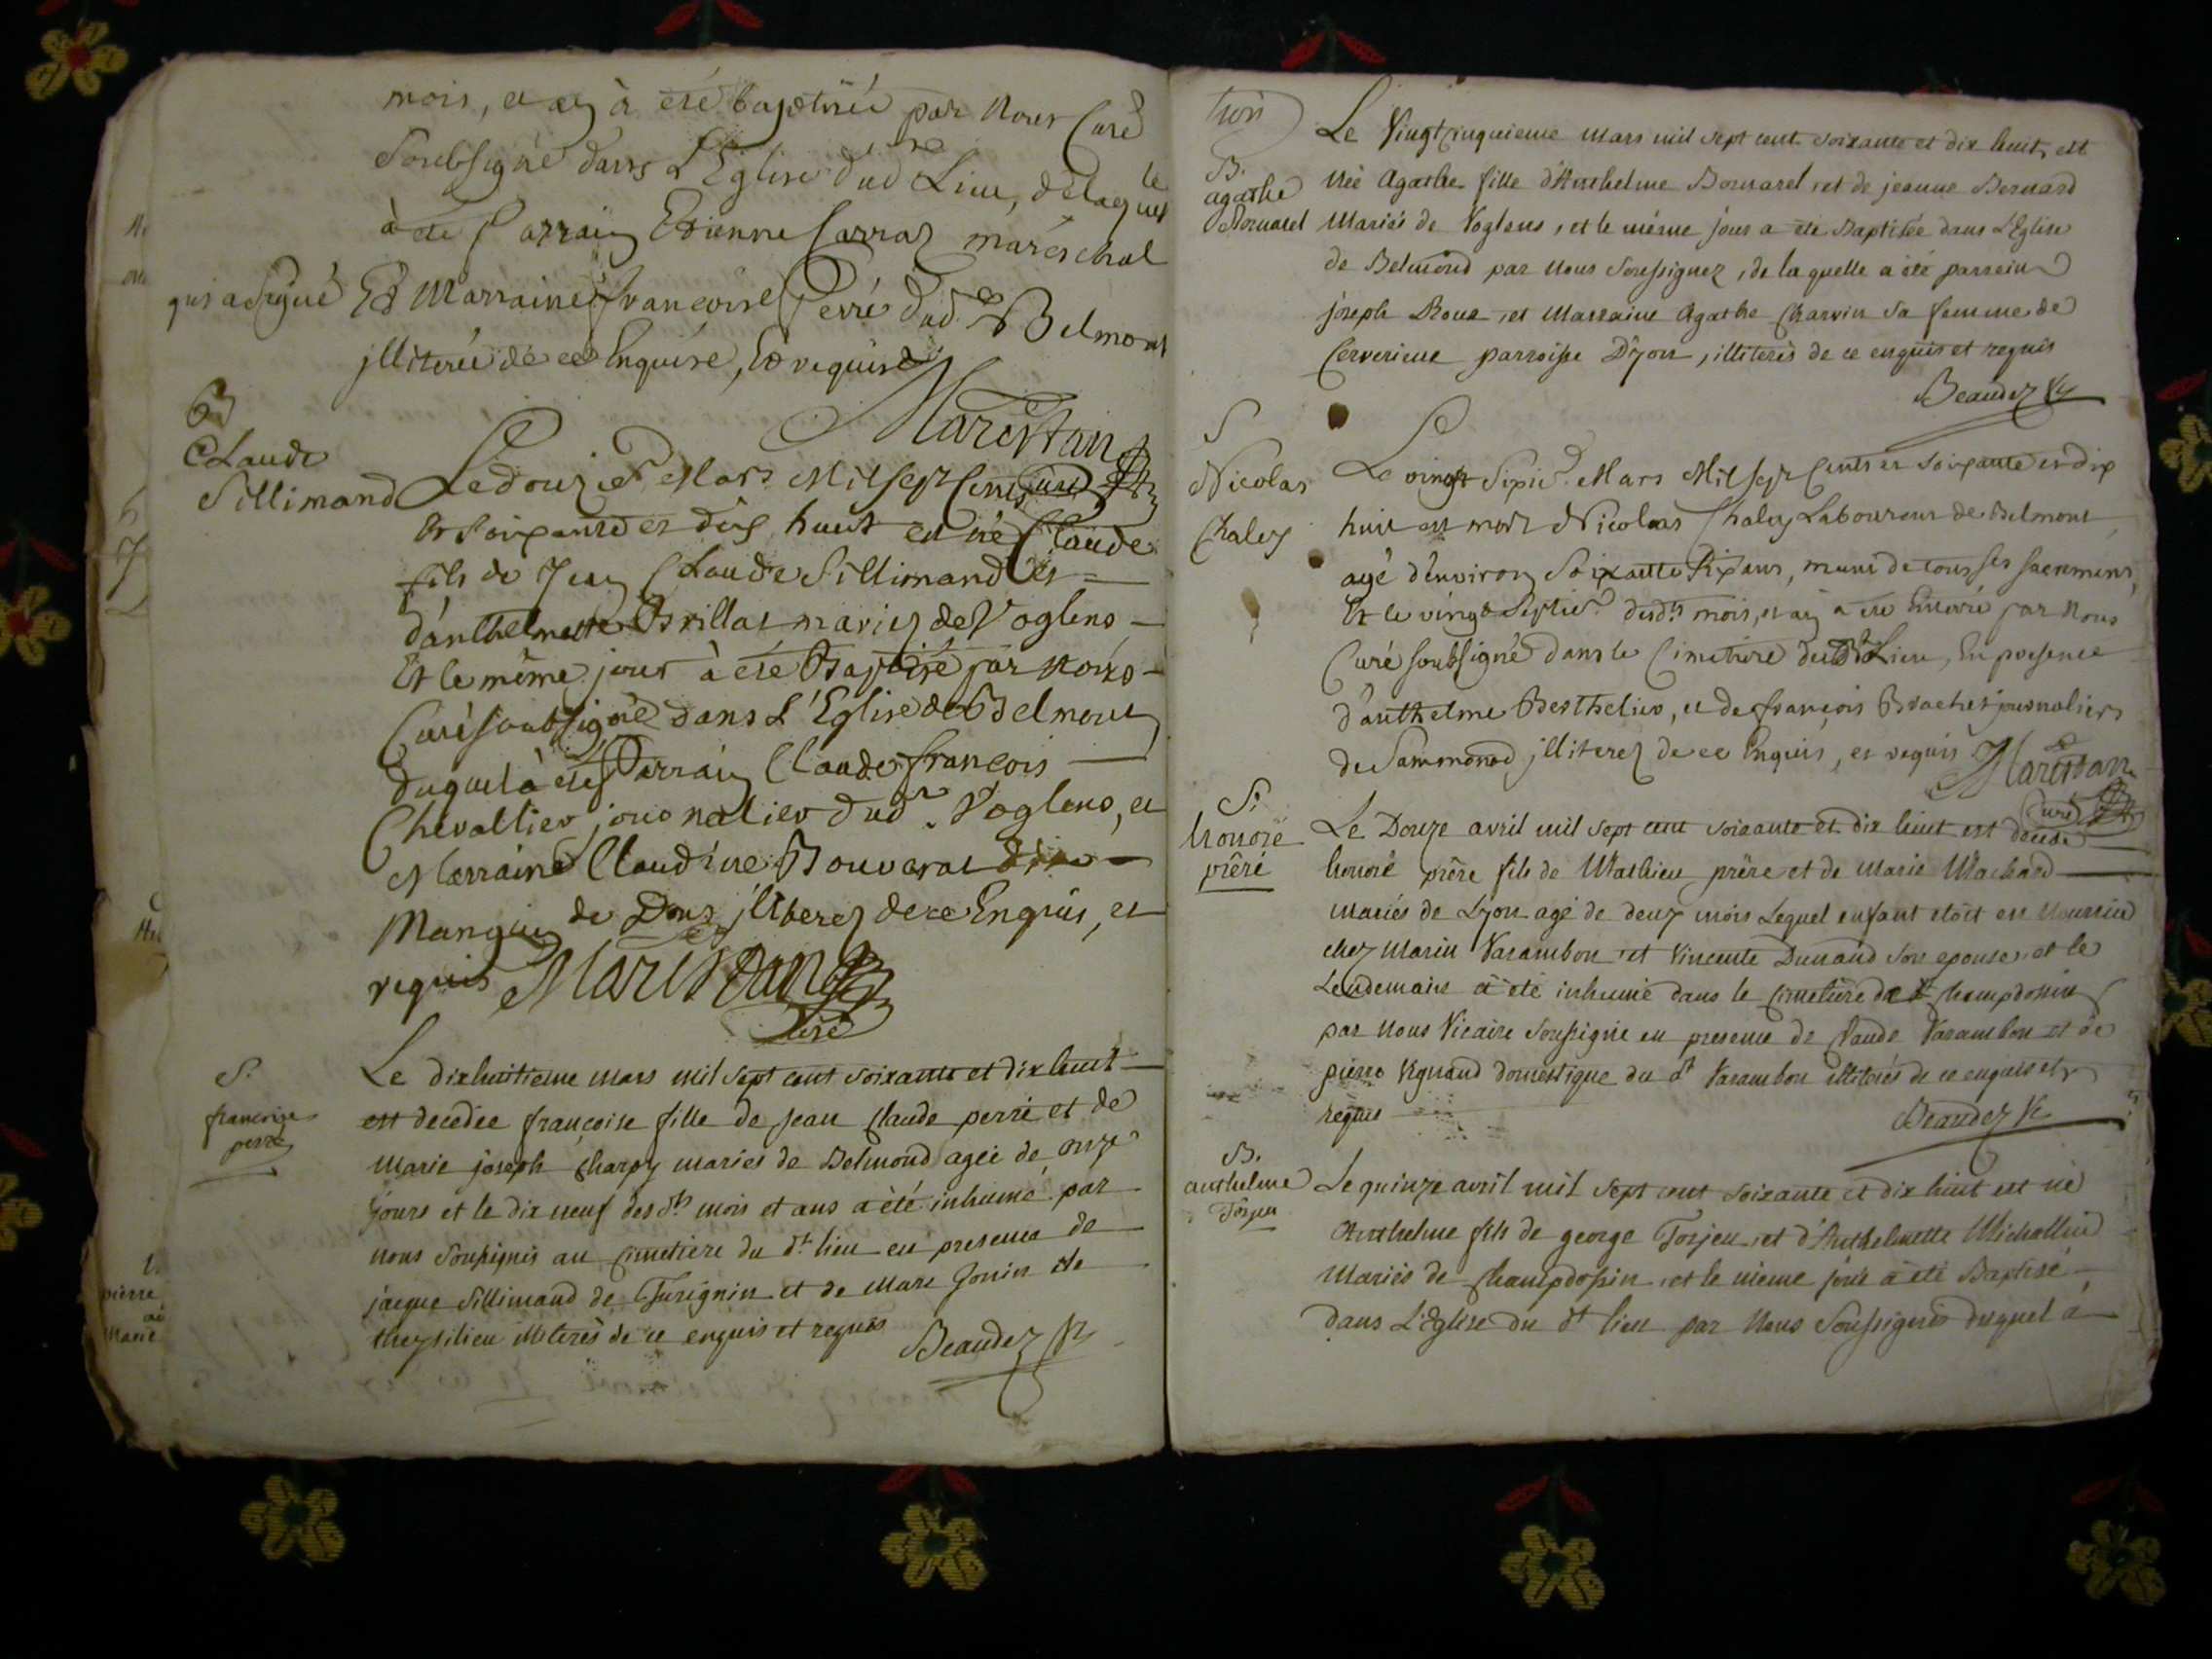 mois, et an à été baptisée par Nous Curé
Soubsigné dans L'Eglise dud Lieu, de laquelle
à été Parrain Etienne Carraz maréschal
qui a signé Et Marraine françoise Perré dud. Belmont
jlliterée de ce Enquise, Et requise
Marestan
Curé
B
Claude
Sillimand
Le douzie. Mars Mil sept Cents
Et soixante et dix huit est né Claude
fils de Jean Claude Sillimand et
d'anthelmette Brillat mariez de Voglens
Et le même jour à été Baptisé par Nous
Curé soubsigné dans L'Eglise de Belmont
duquel à été Parrain Claude françois
Chevallier journalier dud. Voglens, et
Marraine Claudine Bouvarat
de jlliterez de ce Enquis, et
requis Marestan
Curé
S.
françoise
perré
Le dixhuitieme mars mil sept cent soixante et dix huit
est decedée françoise fille de jean claude perré et de
Marie joseph charpy mariés de Belmond agée de onze
jours et le dix neuf des dts mois et ans a été inhumé par
nous soussignés au cimetiere du dt lieu en presence de
jacque Sillimand de Turignin et de Marc Gonin de
cheysilieu illiterés de ce enquis et requis Beaudez Vic
pierre
Marie
trois
B.
agathe
Bornarel
Le Vingt cinquieme Mars mil sept cent soixante et dix huit, est
Née Agathe fille d'Anthelme Bornarel et de jeanne Bernard
Mariés de Voglens, et le même jour a été Baptisée dans L'Eglise
de Belmond par Nous Soussignez, de la quelle a été parrein
joseph Roux et Marraine Agathe Charvin sa femme de
Cerverieue parroisse D'yon, illiterés de ce enquis et requis
Beaudez Vic
S
Nicolas
Chaley
Le vingt Sixie. Mars Mil sept Cents et soixante et dix
huit est mort Nicolas Chaley Laboureur de Belmont
agé d'environ Soixante Six ans, muni de tous ses sacremens,
Et le vingt Septie. desdts mois, et an a été Enterré par Nous
Curé soubsigné dans le Cimetiere dudt Lieu, En presence
d'anthelme Berthelier, et de françois Brachet journaliers
de Sammonod jlliterez de ce Enquis, et requis Marestan
Curé
S.
honoré
prêré
Le Douze avril mil sept cent soixante et dix huit est decedé
honoré prêre fils de Mathieu prêre et de Marie Machard
mariés de Lyon agé de deux mois Lequel enfant etoit en Nourrice
chez Marin Varambon et Vincente Dunand son epouse et le
Lendemain a été inhumé dans le cimetiere de champdossin
par Nous Vicaire Soussigné en presence de claude Varambon et de
pierre Vignand domestique du dt Varambon illiterés de ce enquis et
requis
Beaudez Vic
B.
anthelme
Torjeu
Le quinze avril mil sept cent soixante et dix huit est né
Anthelme fils de george Torjeu et d'Anthelmette Michollin
Mariés de champdossin, et le même jour a été Baptisé
dans L'Eglise du dt lieu par Nous Soussignés duquel à